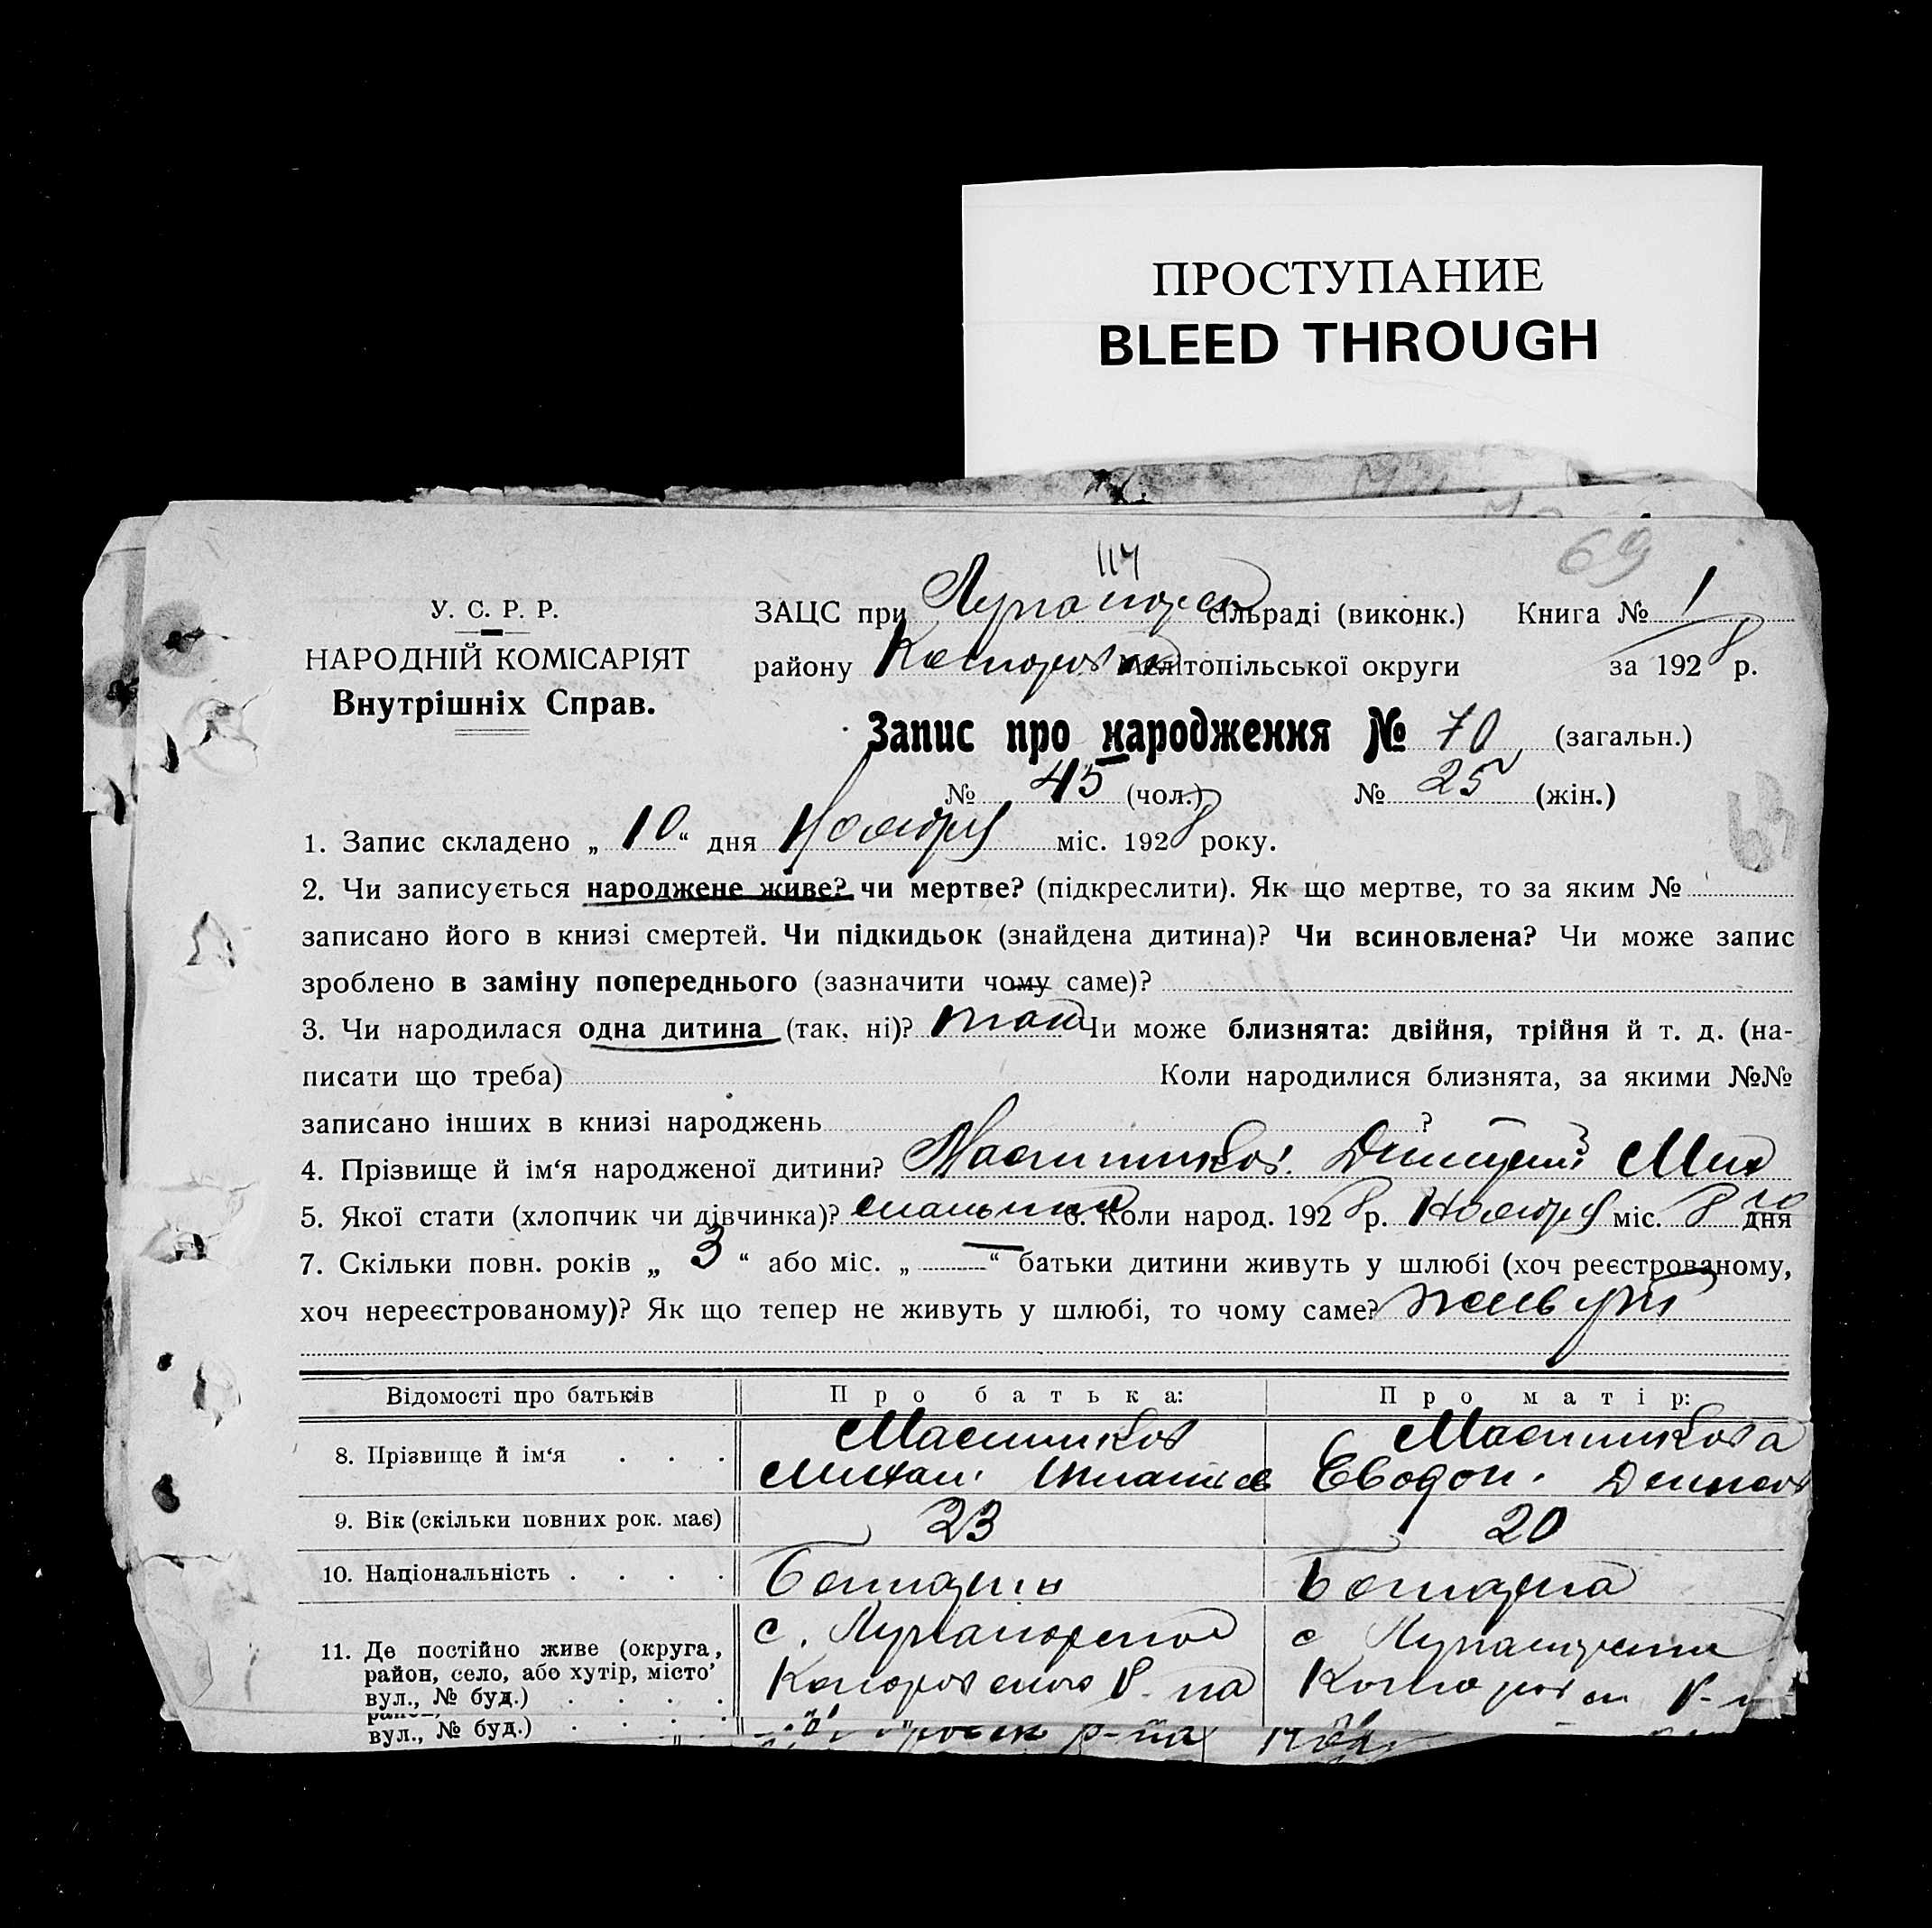 ПРОСТУПАНИЕ
BLEED THROUGH
69
114
У. С. Р. Р.
НАРОДНІЙ КОМІСАРІЯТ
Внутрішніх Справ.
ЗАЦС при сільраді (виконк.) Книга № 1
району Мелітопільської округи за 1928 р.
Запис про народження № 70 (загальн.)
№ 45 (чол.) № 25 (жін.)
1. Запис складено „ 10 “ дня Ноября міс. 1928 року.
2. Чи записується народжене живе? чи мертве? (підкреслити). Як що мертве, то за яким №
записано його в книзі смертей. Чи підкидьок (знайдена дитина)? Чи всиновлена? Чи може запис
зроблено в заміну попереднього (зазначити чому саме)?
3. Чи народилася одна дитина (так, ні)? так Чи може близнята: двійня, трійня й т. д. (на-
писати що треба) Коли народилися близнята, за якими №№
записано інших в книзі народжень ?
4. Прізвище й ім‘я народженої дитини? Дмитрий Мих
5. Якої стати (хлопчик чи дівчинка)? 6. Коли народ. 1928 р. Ноября міс. 8 го дня
7. Скільки повн. років „ 3 “ або міс. „ — “ батьки дитини живуть у шлюбі (хоч реєстрованому,
хоч нереєстрованому)? Як що тепер не живуть у шлюбі, то чому саме? живут
Відомості про батьків Про батька: Про матір:
8. Прізвище й ім‘я . . .
9. Вік (скільки повних рок. має) 23 20
10. Національність . . . . Болгарин Болгарка
11. Де постійно живе (округа,
район, село, або хутір, місто’
вул., № буд.) . . . .
вул., № буд.) . . . . р-на